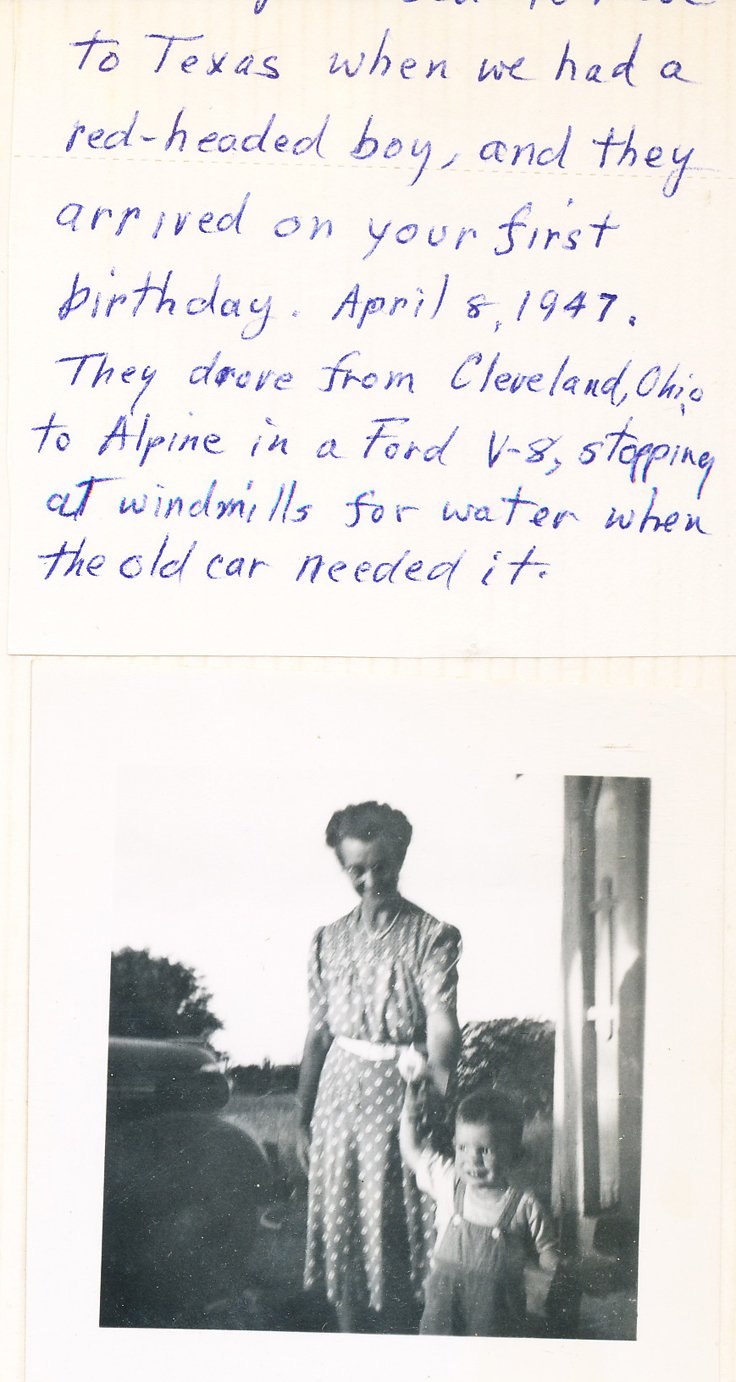 to Texas when we had a
red-headed boy, and they
arrived on your first
birthday. April 8, 1947.
They drove from Cleveland, Ohio
to Alpine in a Ford V-8, stopping
at windmills for water when
the old car needed it.